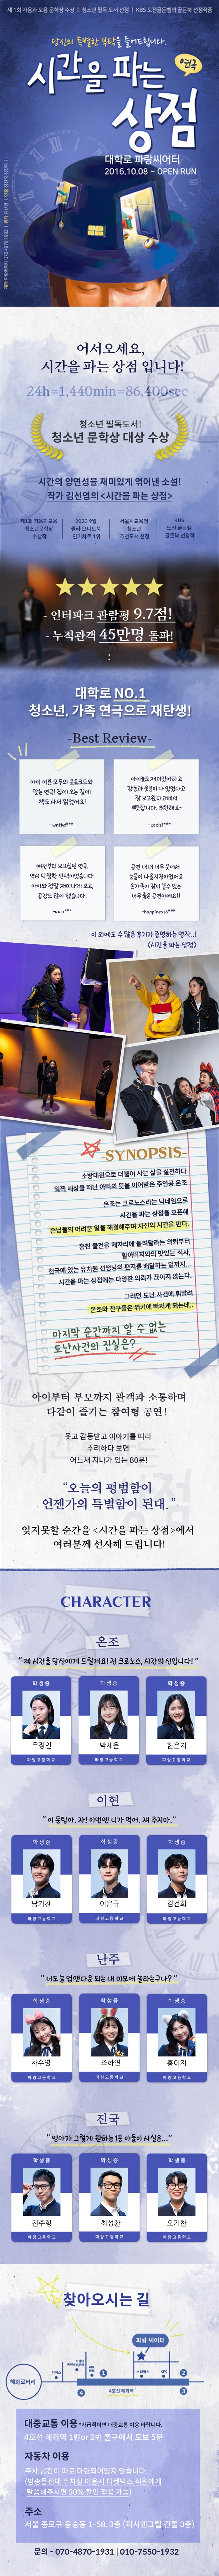 제 1회 자음과 모음 문학상 수상 | 청소년 필독 도서 선정 | KBS 도전골든벨의 골든북 선정작품
당신의 특별한 부탁을 들어드립니다.
시간을 파는
상점
연극
대학로 파랑씨어터
2016.10.08 ~ OPEN RUN
어서오세요,
시간을 파는 상점 입니다!
24h=1,440min=86,400sec
청소년 필독도서!
청소년 문학상 대상 수상
시간의 양면성을 재미있게 엮어낸 소설!
작가 김선영의 <시간을 파는 상점>
제1회 자음과모음
청소년문학상
수상작
2020 9월
윌라 오디오북
인기차트 1위
서울시교육청
청소년
추천도서 선정
KBS
도전 골든벨
골든북 선정작
- 인터파크 관람평 9.7점!
- 누적관객 45만명 돌파!
대학로 NO.1
청소년, 가족 연극으로 재탄생!
-Best Review-
아이 어른 모두의 웃음코드와
맞는 연극! 집에 오는 길에
책도 사서 읽었어요!
아이들도 재미있어하고
감동과 웃음이 다 있었다고
잘 보고왔다고해서
뿌듯합니다. 추천해요~
- cooki***
예전부터 보고싶던 연극.
역시 탁월한 선택이었습니다.
아이와 정말 재미나게 보고,
공감도 많이 했습니다.
공연 내내 너무 웃어서
눈물이 나올지경이었어요
온가족이 같이 볼수 있는
너무 좋은 공연이예요!!
-happiness6***
이 외에도 수많은 후기가 증명하는 명작..!
<시간을 파는 상점>
-SYNOPSIS-
소방대원으로 더불어 사는 삶을 실천하다
일찍 세상을 떠난 아빠의 뜻을 이어받은 주인공 온조
온조는 크로노스라는 닉네임으로
시간을 파는 상점을 오픈해
손님들의 어려운 일을 해결해주며 자신의 시간을 판다.
훔친 물건을 제자리에 돌려달라는 의뢰부터
할아버지와의 맛있는 식사,
천국에 있는 유치원 선생님의 편지를 배달하는 일까지...
시간을 파는 상점에는 다양한 의뢰가 끊이지 않는다.
그러던 도난 사건에 휘말려
온조와 친구들은 위기에 빠지게 되는데..
마지막 순간까지 알 수 없는
도난사건의 진실은?
아이부터 부모까지 관객과 소통하며
다같이 즐기는 참여형 공연!
웃고 감동받고 이야기를 따라
추리하다 보면
어느새 지나가 있는 80분!
“오늘의 평범함이
언젠가의 특별함이 된대.”
잊지못할 순간을 <시간을 파는 상점>에서
여러분께 선사해 드립니다!
CHARACTER
온조
“ 제 시간을 당신에게 드릴게요! 전 크로노스, 시간의 신입니다! ”
학생증
우정인
파랑고등학교
학생증
박세은
파랑고등학교
학생증
한은지
파랑고등학교
이현
“ 이 둔팅아. 자! 이번엔 니가 먹어. 재 주지마. ”
학생증
남기찬
파랑고등학교
학생증
이은규
파랑고등학교
학생증
김건희
파랑고등학교
난주
학생증
차수영
파랑고등학교
학생증
조하연
파랑고등학교
학생증
홍이지
파랑고등학교
진국
“ 엄마가 그렇게 원하는 1등 아들이 사실은... ”
학생증
전주형
파랑고등학교
학생증
최성환
파랑고등학교
학생증
오기찬
파랑고등학교
찾아오시는 길
파랑 씨어터
혜화로터리
KFC
1
2
4호선 혜화역
4
3
대중교통 이용 *가급적이면 대중교통 이용 바랍니다.
4호선 혜화역 1번or 2번 출구에서 도보 5분
자동차 이용
주차 공간이 따로 마련되어있지 않습니다.
(방송통신대 주차장 이용시 티켓박스 직원에게
말씀해주시면 30% 할인 적용 가능)
주소
서울 종로구 동숭동 1-58, 3층 (피시엔그릴 건물 3층)
문의 - 070-4870-1931 | 010-7550-1932